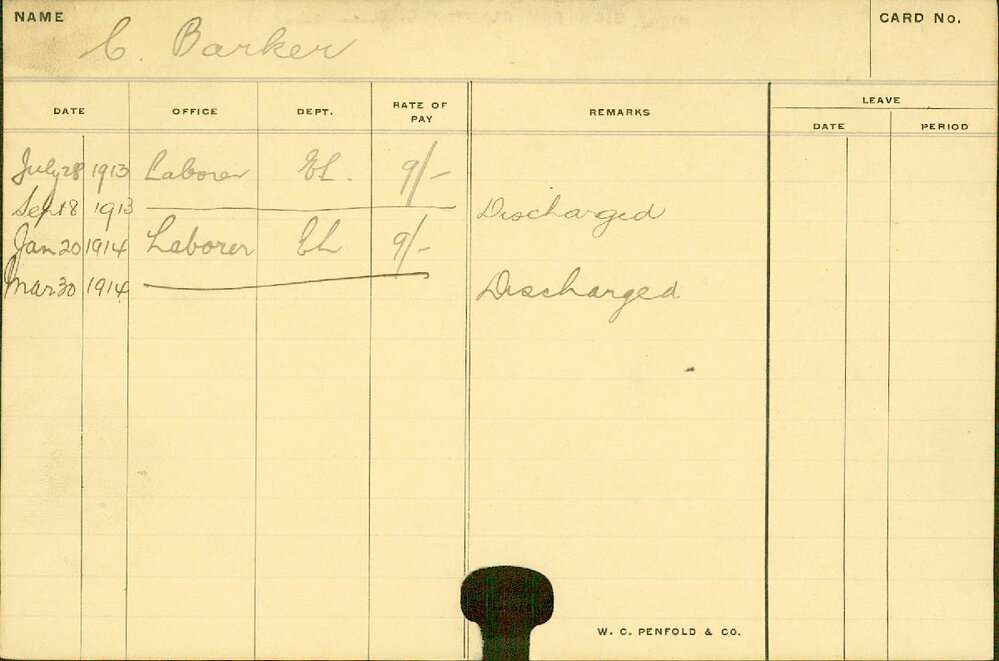 NAME C. Barker CARD No.
DATE OFFICE DEPT. RATE OF PAY REMARKS LEAVE
DATE PERIOD
July 28 1913 Laborer EL. 9/-
Sep 18 1913 Discharged
Jan 20 1914 Laborer EL 9/-
Mar 30 1914 Discharged
W. C. PENFOLD & CO.